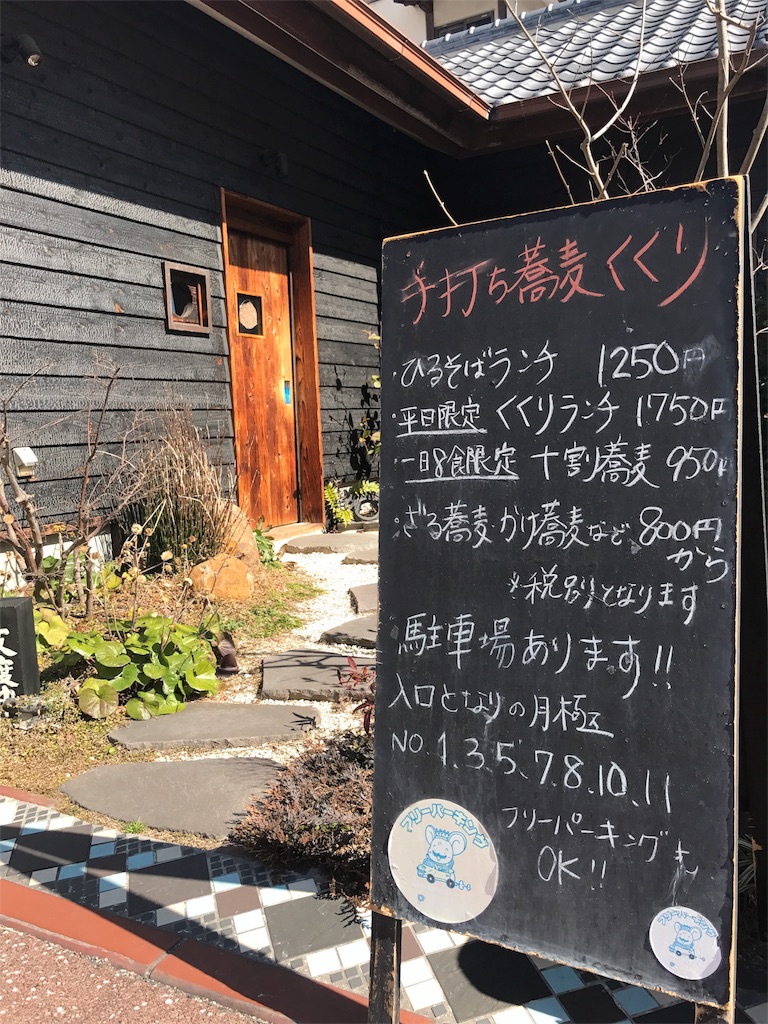 手打ち蕎麦くくり
・ひるそばランチ 1250円
・平日限定 くくりランチ 1750円
・一日8食限定 十割蕎麦 950円
・ざる蕎麦 かけ蕎麦など 800円
から
※税別となります
駐車場あります!!
入口となりの月極
NO.1.3.5.7.8.10.11
フリーパーキングも
OK!!
フリーパーキング
フリーパーキング